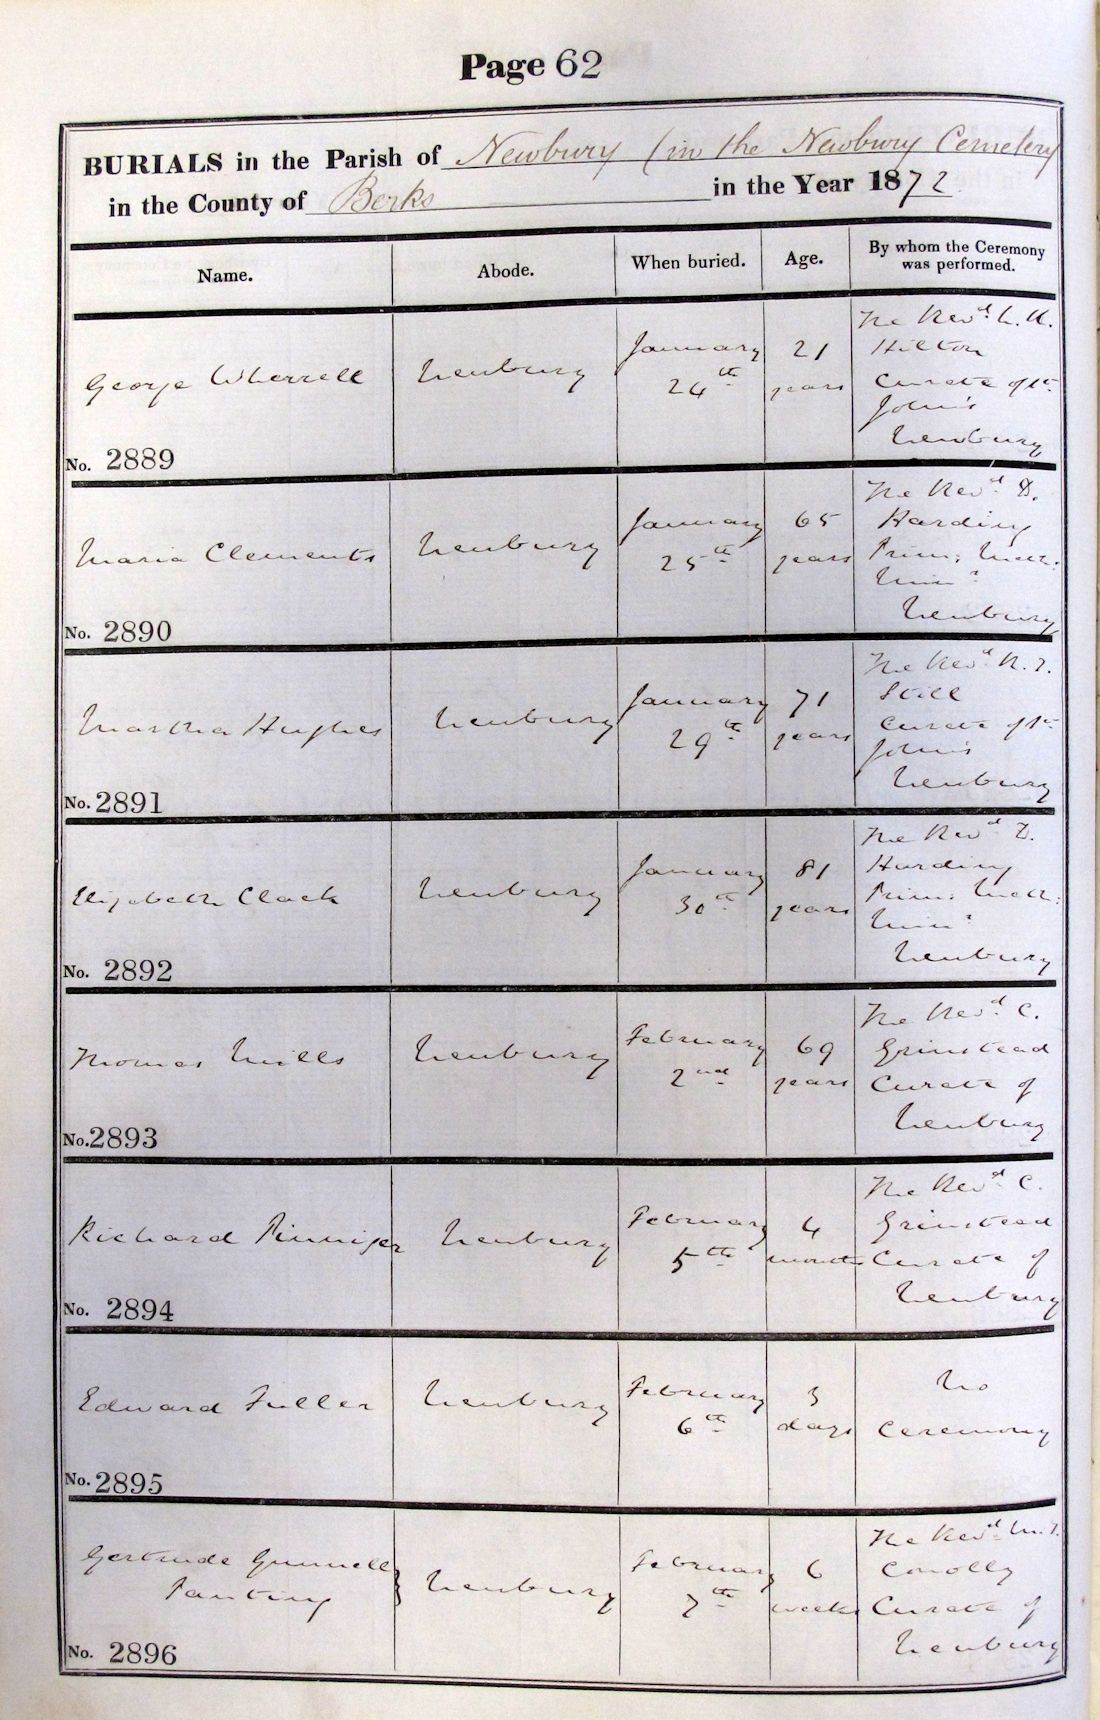 Page 62
BURIALS in the Parish of Newbury (in the Newbury Cemetery
in the County of Berks in the Year 1872
Name. Abode. When buried. Age. By whom the Ceremony
was performed.
The Revd.
January 21 Hilton
George Wherrell Newbury 24th years Curate of St
John's
Newbury
No. 2889
The Revd. D.
January 65 Harding
Maria Clements Newbury 25th years Prim: Meth:
Minr
Newbury
No. 2890
The Revd.
January 71 Still
Martha Hughes Newbury 29th years Curate of St
John's
Newbury
No. 2891
The Revd D.
January 81 Harding
Elizabeth Clack Newbury 30th years Prim: Meth:
Minr
Newbury
No. 2892
The Revd. C.
February 69 Grinstead
Thomas Mills Newbury 2nd years Curate of
Newbury
No. 2893
The Revd. C.
February 4 Grinstead
Richard Pinniger Newbury 5th months Curate of
Newbury
No. 2894
February 3 No
Edward Fuller Newbury 6th days Ceremony
No. 2895
The Revd
Gertrude Gunnell February 6 Conolly
Panting Newbury 7th weeks Curate of
Newbury
No. 2896